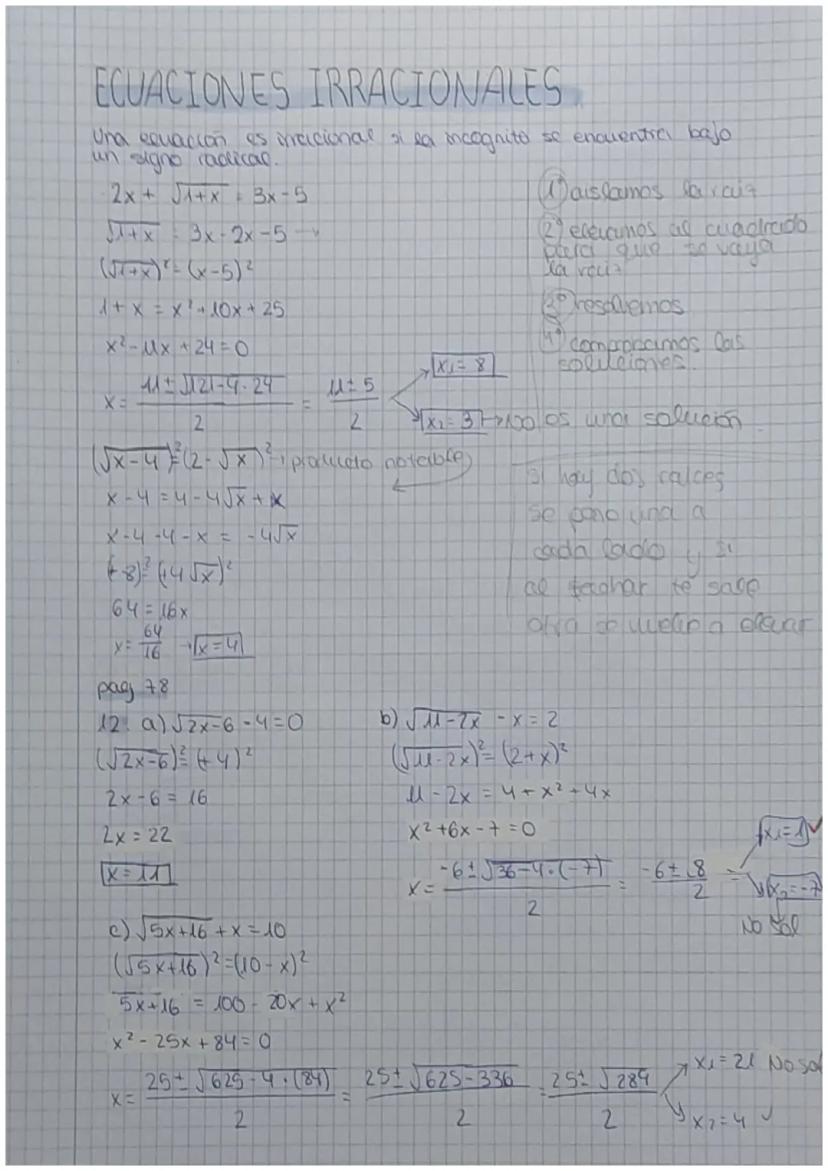 ECUACIONES IRRACIONALES
Una ecuación es irracional si la incognito se encuentra bajo
un signo radical.
2x + √1+x = 3x-5
√1+x = 3x-2x-5 →
(√1+x)² = (x-5)²
1+x = x²+10x+25
x²-11x+24=0
x = 11±√121-4·24 / 2 = 11±5 / 2
x₁=8
x₂=3 → NO es una solución
1º aislamos la raiz
2º elevamos al cuadrado
para que se vaya
la raiz
3º resolvemos
4º comprobamos las
soluciones.
(√x-4)²=(2-√x)² → producto notable
x-4=4-4√x+x
x-4-4-x = -4√x
(+8)²=(+4√x)²
64=16x
x= 64/16 → x=4
Si hay dos raices
se pone una a
cada lado y si
al tachar te sale
otra se vuelve a elevar
pag 78
12. a) √2x-6 -4=0
(√2x-6)²=(+4)²
2x-6=16
2x=22
x=11
b) √11-2x -x=2
(√11-2x)²=(2+x)²
11-2x=4+x²+4x
x²+6x-7=0
x= -6±√36-4·(-7) / 2 = -6±8 / 2 =
x₁=1 ✓
x₂=-7
No sol
c) √5x+16 +x=10
(√5x+16)²=(10-x)²
5x+16 = 100-20x+x²
x²-25x+84=0
x= 25±√625-4·(84) / 2 = 25±√625-336 / 2 = 25±√289 / 2
x₁=21 No sol
x₂=4 ✓